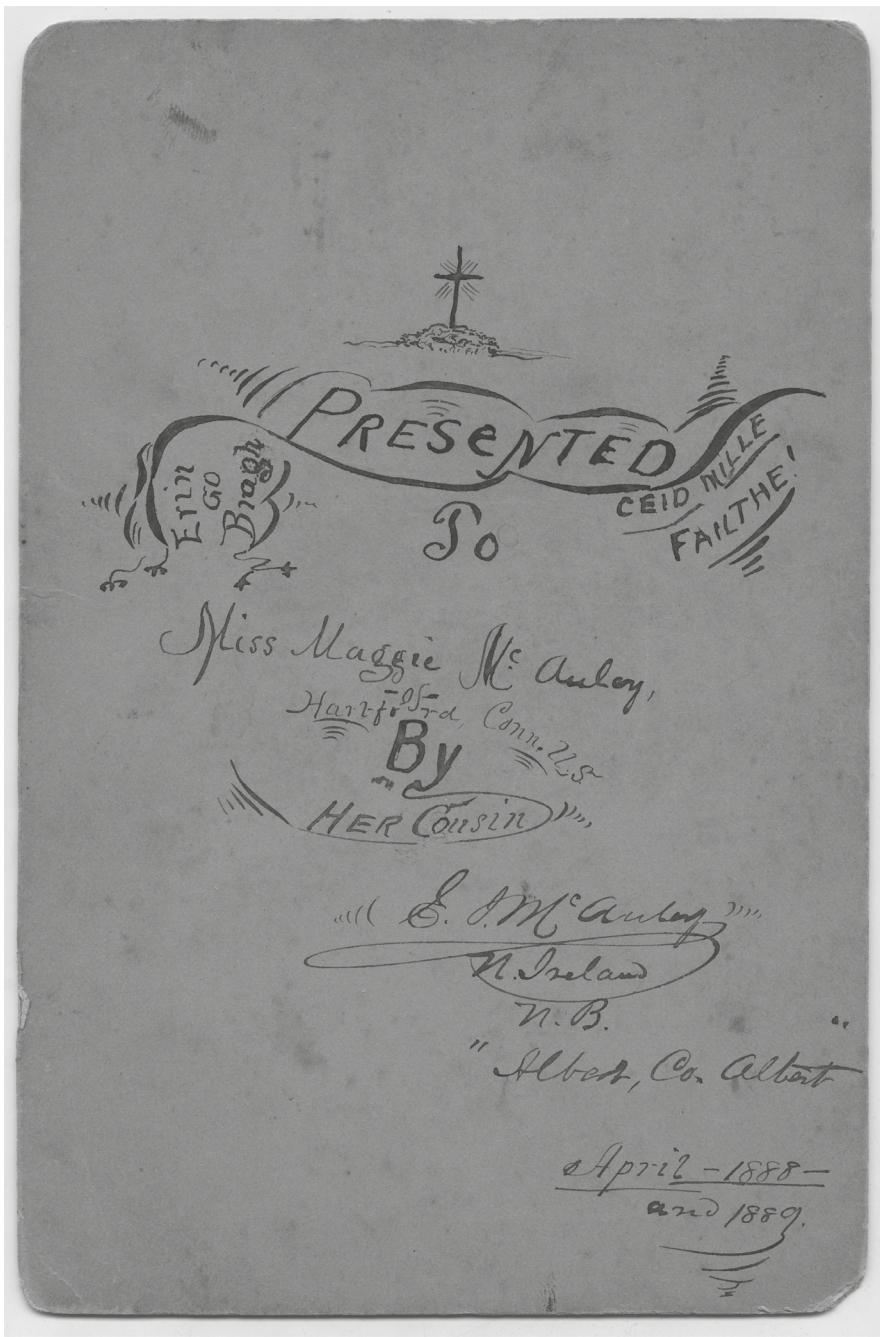 PRESENTED
Erin
GO
Bragh
CEID MILLE
FAILTHE!
To
Miss Maggie Mc Auley,
of
Hartford, Conn. U.S.
By
HER Cousin
E. J. Mc Auley
N. Ireland
N.B.
" Albert, Co. Albert "
April - 1888 -
and 1889.